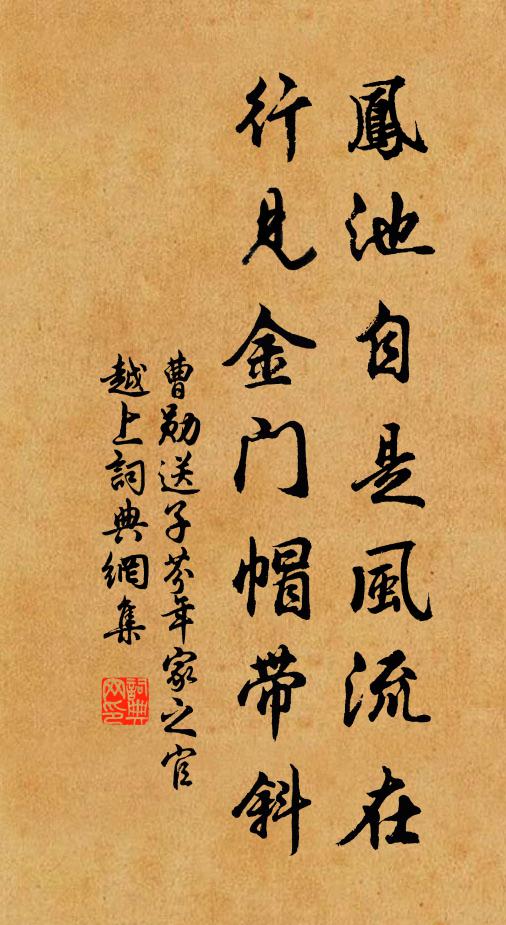 鳳池自是風流在
行見金门帽带斜
曹勛送子芬年家之官
越上詞典網集
詞典網印